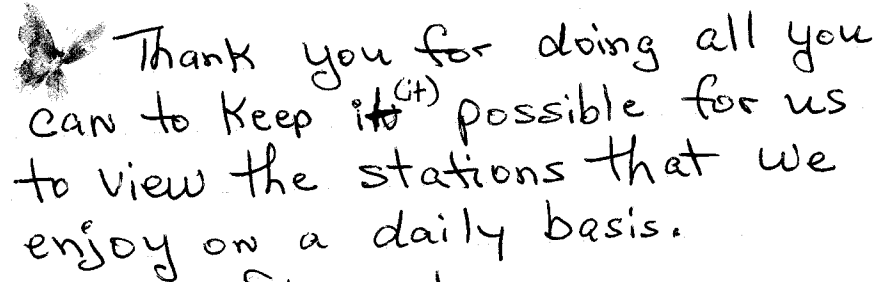 Thank you for doing all you
can to keep (it) possible for us
to view the stations that we
enjoy on a daily basis.